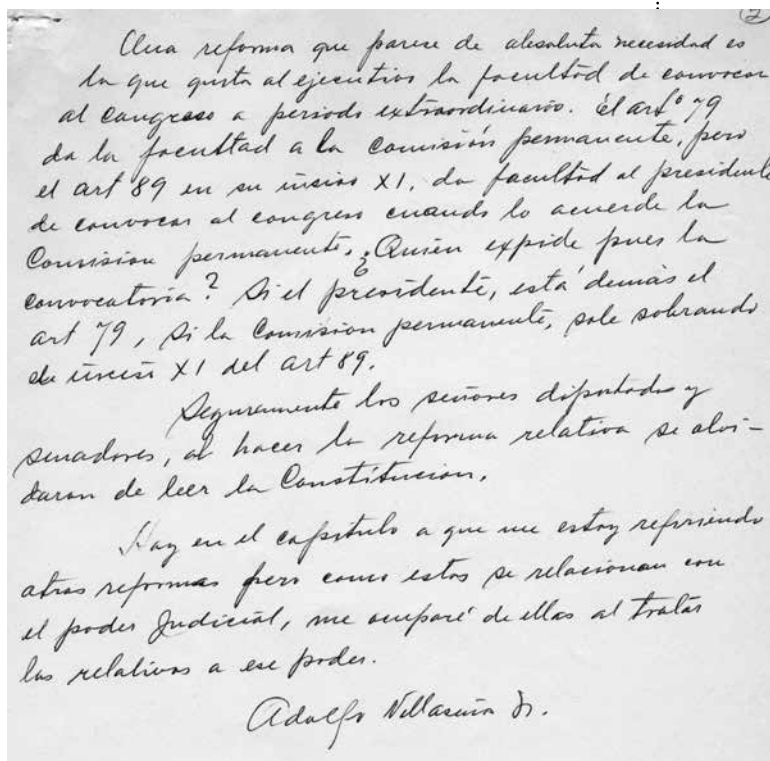 2
Una reforma que parece de absoluta necesidad es
la que quita al ejecutivo la facultad de convocar
al congreso a periodo extraordinario. El artº 79
da la facultad a la Comisión permanente, pero
el art 89 en su inciso XI, da facultad al presidente
de convocar al congreso cuando lo acuerde la
Comision permanente. ¿Quién expide pues la
convocatoria? Si el presidente, está demás el
art 79, si la Comision permanente, sale sobrando
el inciso XI del art 89.
Seguramente los señores diputados y
senadores, al hacer la reforma relativa se olvi-
daron de leer la Constitucion.
Hay en el capitulo a que me estoy refiriendo
otras reformas pero como estas se relacionan con
el poder Judicial, me ocuparé de ellas al tratar
las relativas a ese poder.
Adolfo Villaseñor Jr.